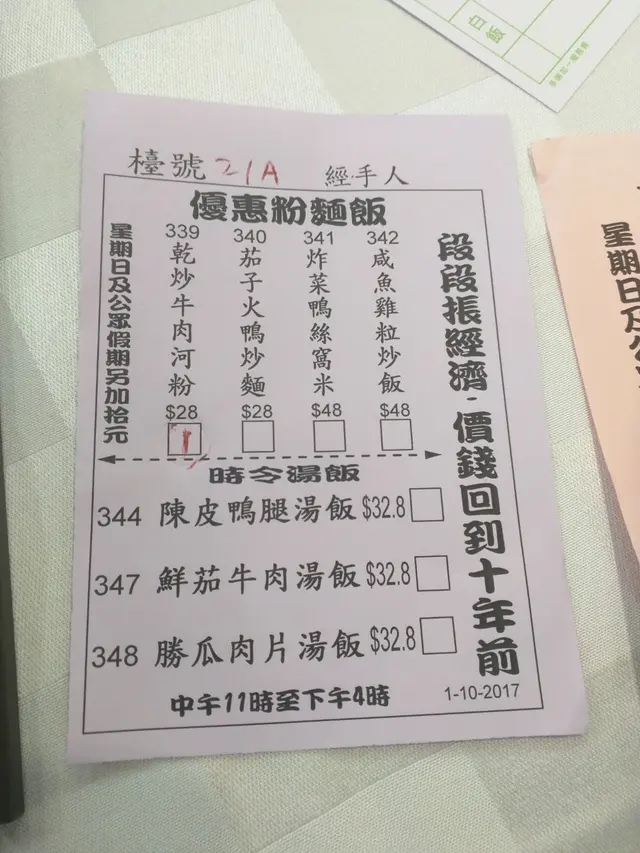 白飯
檯號 21A 經手人
優惠粉麵飯
星期日及公眾假期另加拾元
339 乾炒牛肉河粉 $28 1
340 茄子火鴨炒麵 $28
341 炸菜鴨絲窩米 $48
342 咸魚雞粒炒飯 $48
段段振經濟·價錢回到十年前
時令湯飯
344 陳皮鴨腿湯飯 $32.8
347 鮮茄牛肉湯飯 $32.8
348 勝瓜肉片湯飯 $32.8
中午11時至下午4時
1-10-2017
星期日及公